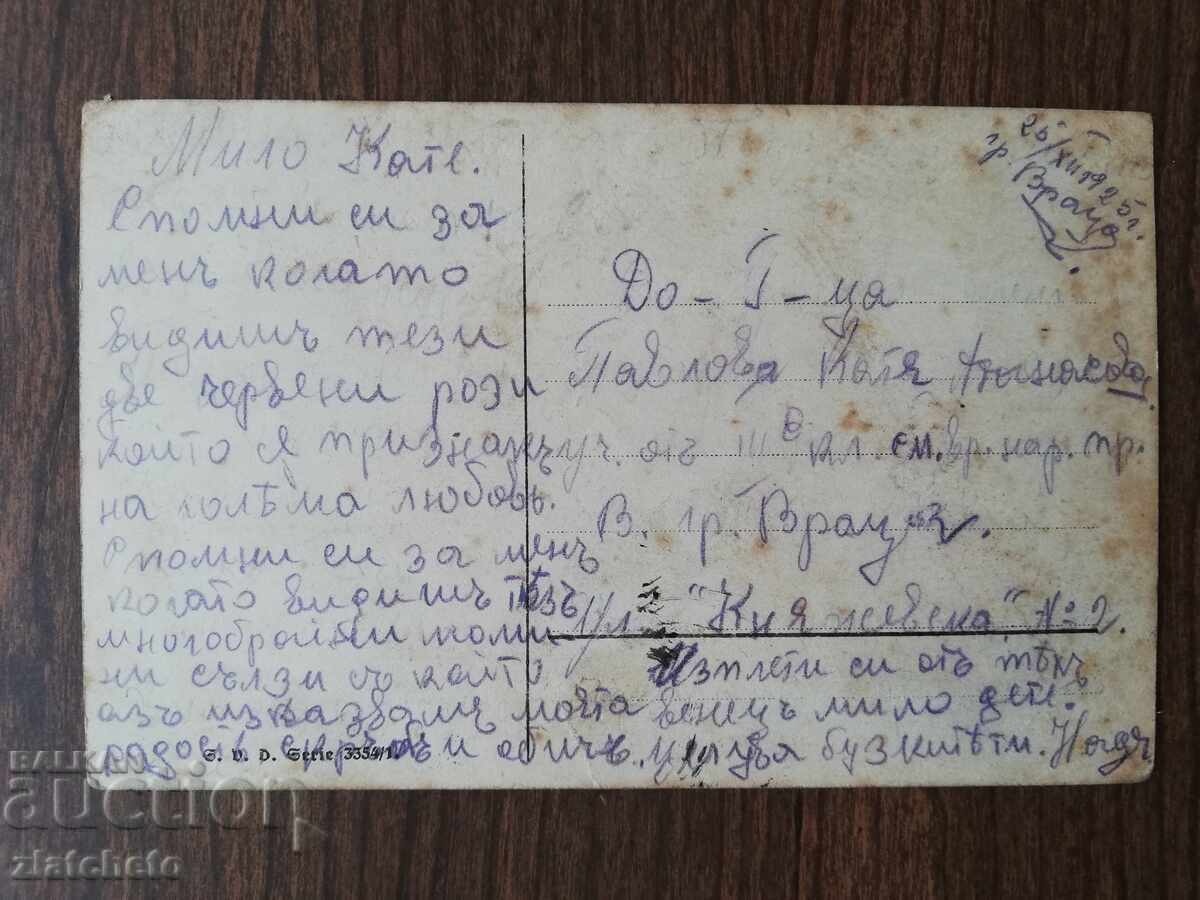 Мило Кате.
Спомни си за
менъ когато
видишъ тези
две червени рози
които я признакъ
на голѣма любовь.
Спомни си за менъ
когато видишъ тѣзъ
многобройни моми
ни сълзи съ които
азъ изказвамъ моята
радость
25/XII 1925 г.
гр. Враца
До - Г-ца
Павлова Катя
уч. отъ III кл. см. вр. нар. пр.
В. гр. Враца.
Ул. "Княжевска" № 2.
Изплети си отъ тѣхъ
венецъ мило дете.
бузкитѣти. Надъ
S. V. D. Serie 3354/1
BALKAN
auction
zlatcheto